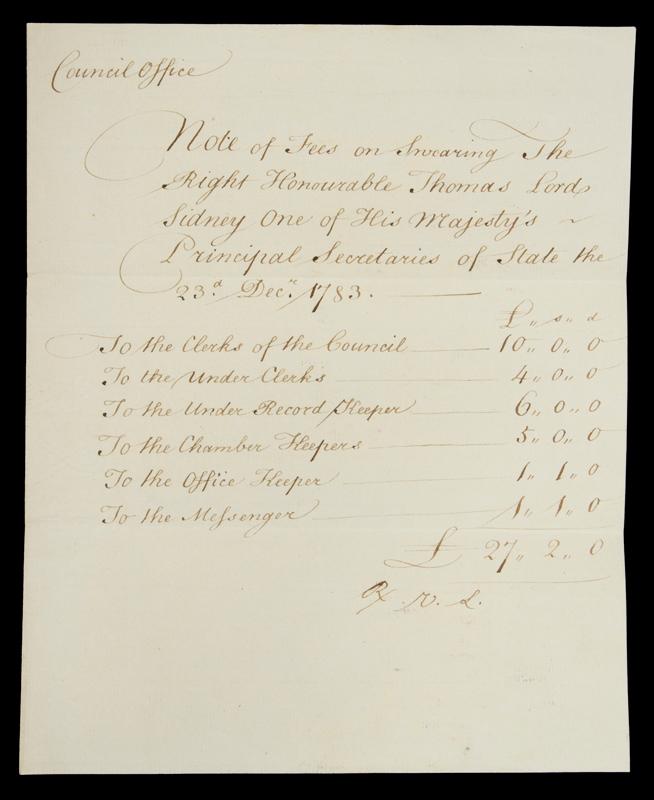 Council Office
Note of Fees on Swearing The
Right Honourable Thomas Lord
Sidney One of His Majesty's ~
Principal Secretaries of State the
23.d Dec.r 1783.
£ „ s „ d
To the Clerks of the Council 10 „ 0 „ 0
To the Under Clerks 4 „ 0 „ 0
To the Under Record Keeper 6 „ 0 „ 0
To the Chamber Keepers 5 „ 0 „ 0
To the Office Keeper 1 „ 1 „ 0
To the Messenger 1 „ 1 „ 0
£ 27 „ 2 „ 0